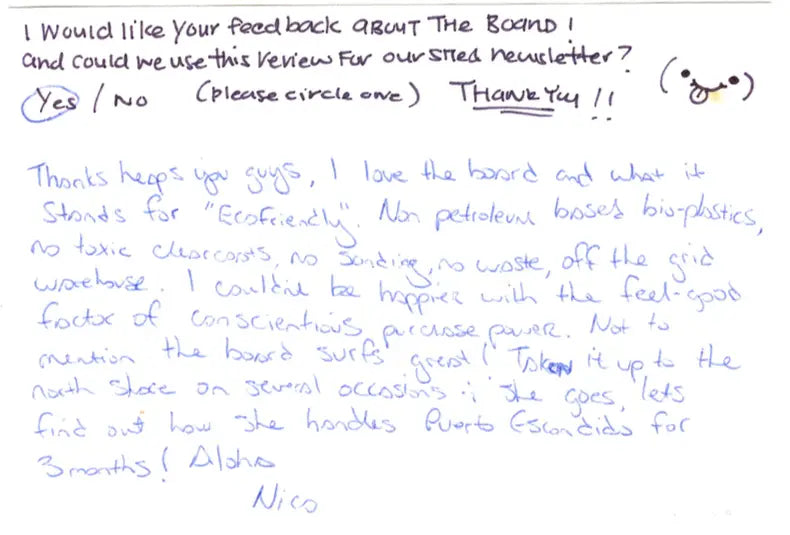 I would like your feedback about the Board!
and could we use this review for our sned newsletter?
Yes / No (please circle one) Thank you!!
Thanks heaps you guys, I love the board and what it
stands for "Ecofriendly". Non petroleum based bio-plastics,
no toxic clearcoats, no sanding, no waste, off the grid
warehouse. I couldn't be happier with the feel-good
factor of conscientious purchase power. Not to
mention the board surfs great! Taken it up to the
north shore on several occasions; she goes, lets
find out how she handles Puerto Escondido for
3 months! Aloha
Nico